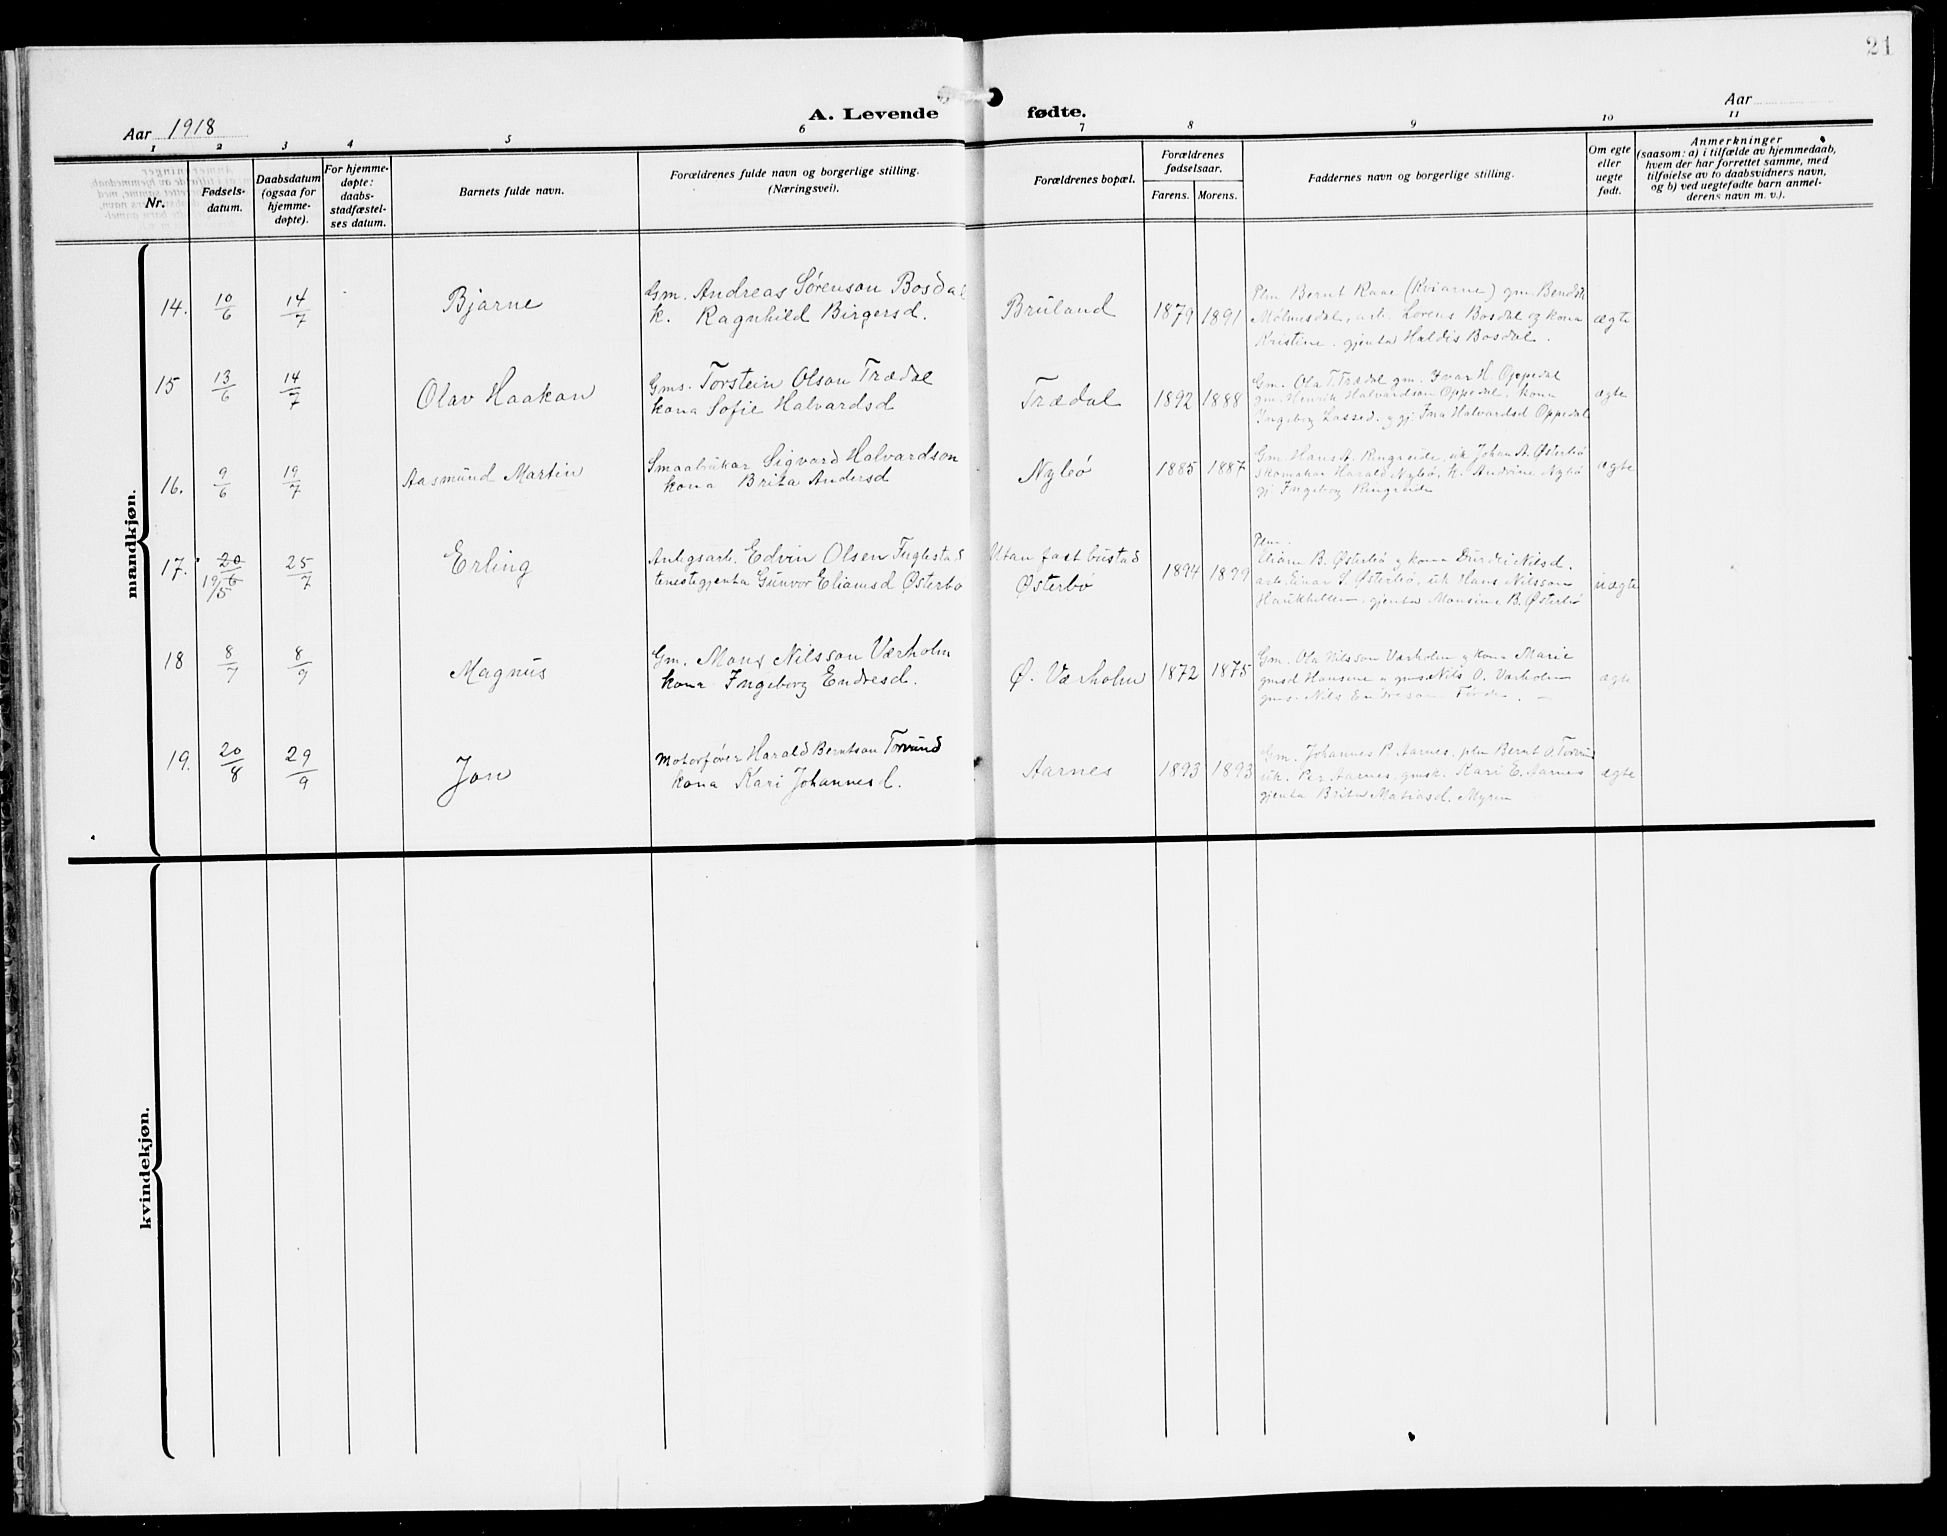 21
Aar 1918
A. Levende fødte.
Aar
1 2 3 4 5 6 7 8 9 10 11
Nr.
Fødsels-
datum.
Daabsdatum
(ogsaa for
hjemme-
døpte).
For hjemme-
døpte:
daabs-
stadfæstel-
ses datum.
Barnets fulde navn.
Forældrenes fulde navn og borgerlige stilling.
(Næringsvei).
Forældrenes bopæl.
Forældrenes
fødselsaar.
Farens. Morens.
Faddernes navn og borgerlige stilling.
Om egte
eller
uegte
født.
Anmerkninger
(saasom: a) i tilfælde av hjemmedaab,
hvem der har forrettet samme, med
tilføielse av to daabsvidners navn,
og b) ved uegtefødte barn anmel-
derens navn m. v.).
mandkjøn.
14. 10/6 14/7 Bjarne
Gm. Andreas Sørenson Bosdal
k. Ragnhild Birgersd.
Bruland 1879 1891
Plm Bernt Raae (Kviarne) gm. Bendik
arb. Lorens Bosdal og kona
Kristine. gjenta Haldis Bosdal.
ægte
15 13/6 14/7 Olav Haakon
Gms. Torstein Olson Trædal
kona Sofie Halvardsd
Trædal 1892 1888
Gm. Ola T. Trædal gm. Ivar H. Oppedal
gm. Henrik Halvardson Oppedal, kona
Ingeborg Lassed. og gj. Ina Halvardsd Oppedal
ægte
16. 9/6 19/7 Aasmund Martin
Smaabrukar Sigvard Halvardson
kona Brita Andersd
Nybø 1885 1887
Gm. Hans A. Ringereide, uk Johan A. Østerbø
skomakar Harald Nybø, k. Andrine Nybø
gj. Ingeborg Ringereide
ægte
17. 20/6 19/5 25/7 Erling
Anlegsarb. Edvin Olsen Fuglestad
tenestegjenta Gunvor Eliamsd Østerbø
Utan fast bustad
Østerbø
1894 1899
Plm.
Eliam B. Østerbø og kona Durdei Nilsd.
arb. Einar S. Østerbø, uk Hans Nilsson
gjenta Monsine B. Østerbø
uægte
18 8/7 8/9 Magnus
Gm. Mons Nilsson Værholm
kona Ingeborg Endresd.
Ø. Værholm 1872 1875
Gm. Ola Nilsson Værholm og kona Marie
gmsd Hansine og gms Nils O. Værholm
gms. Nils Endreson Førde. —
ægte
19. 20/8 29/9 Jon
Motorfører Harald Berntson Torvund
kona Kari Johannesd.
Aarnes 1893 1893
Gm. Johannes P. Aarnes, plm Bernt O. Torvund
uk. Per Aarnes, gmsk. Kari E. Aarnes
gjenta Brita Matiasd. Myren
ægte
kvindekjøn.